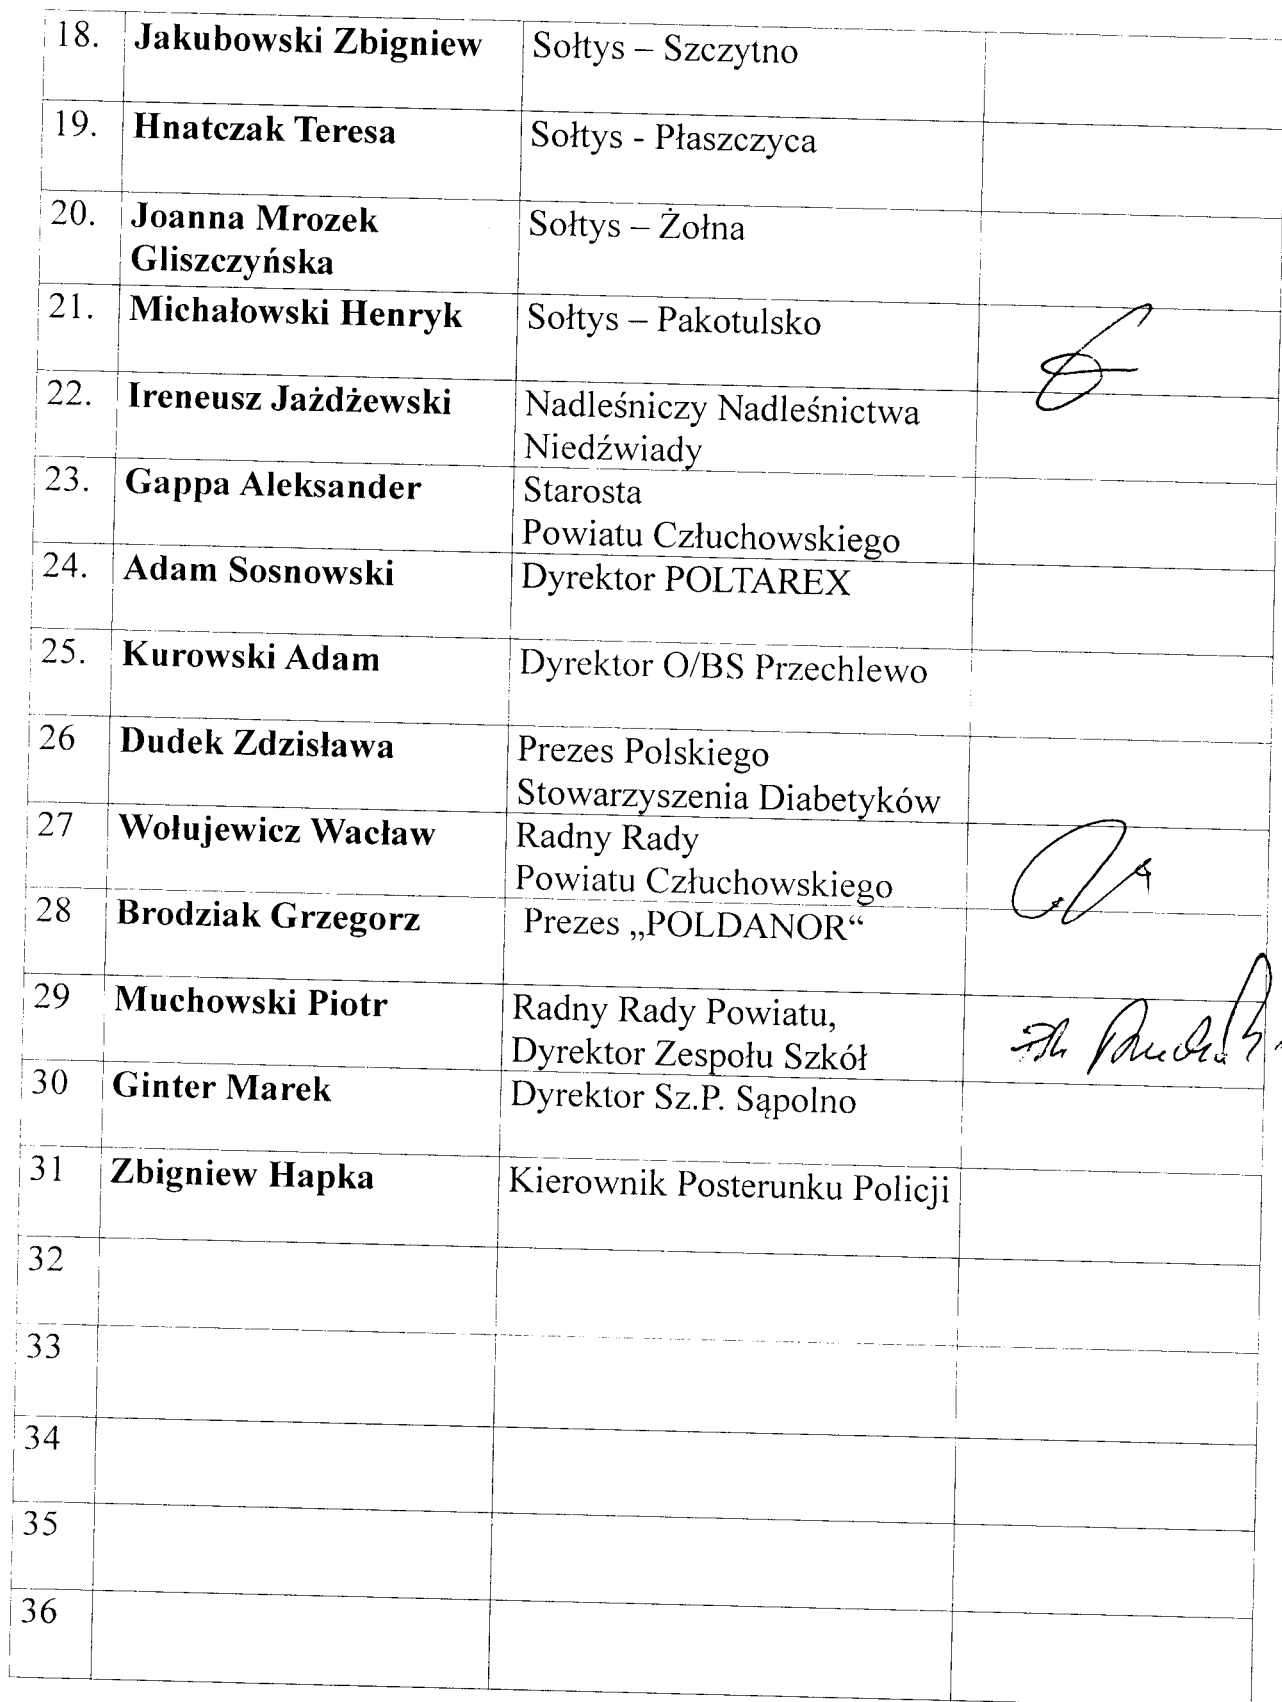 18. Jakubowski Zbigniew Sołtys – Szczytno
19. Hnatczak Teresa Sołtys - Płaszczyca
20. Joanna Mrozek Sołtys – Żołna
Gliszczyńska
21. Michałowski Henryk Sołtys – Pakotulsko
22. Ireneusz Jażdżewski Nadleśniczy Nadleśnictwa
Niedźwiady
23. Gappa Aleksander Starosta
Powiatu Człuchowskiego
24. Adam Sosnowski Dyrektor POLTAREX
25. Kurowski Adam Dyrektor O/BS Przechlewo
26 Dudek Zdzisława Prezes Polskiego
Stowarzyszenia Diabetyków
27 Wołujewicz Wacław Radny Rady
Powiatu Człuchowskiego
28 Brodziak Grzegorz Prezes „POLDANOR“
29 Muchowski Piotr Radny Rady Powiatu,
Dyrektor Zespołu Szkół
30 Ginter Marek Dyrektor Sz.P. Sąpolno
31 Zbigniew Hapka Kierownik Posterunku Policji
32
33
34
35
36